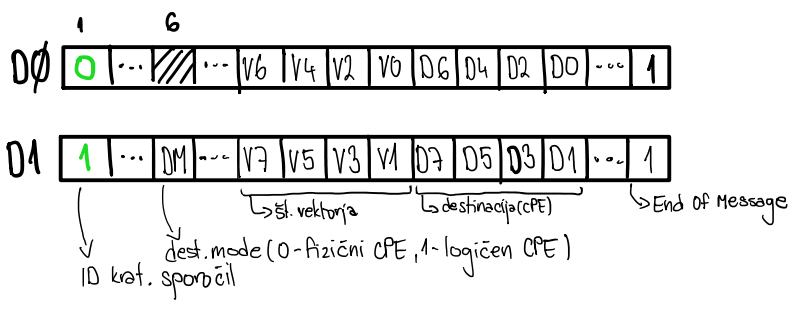 1 6
DØ 0 ... V6 V4 V2 V0 D6 D4 D2 D0 ... 1
D1 1 ... DM ... V7 V5 V3 V1 D7 D5 D3 D1 ... 1
št. vektorja destinacija(CPE) End Of Message
dest. mode (0-fizični CPE, 1-logičen CPE)
ID krat. sporočil